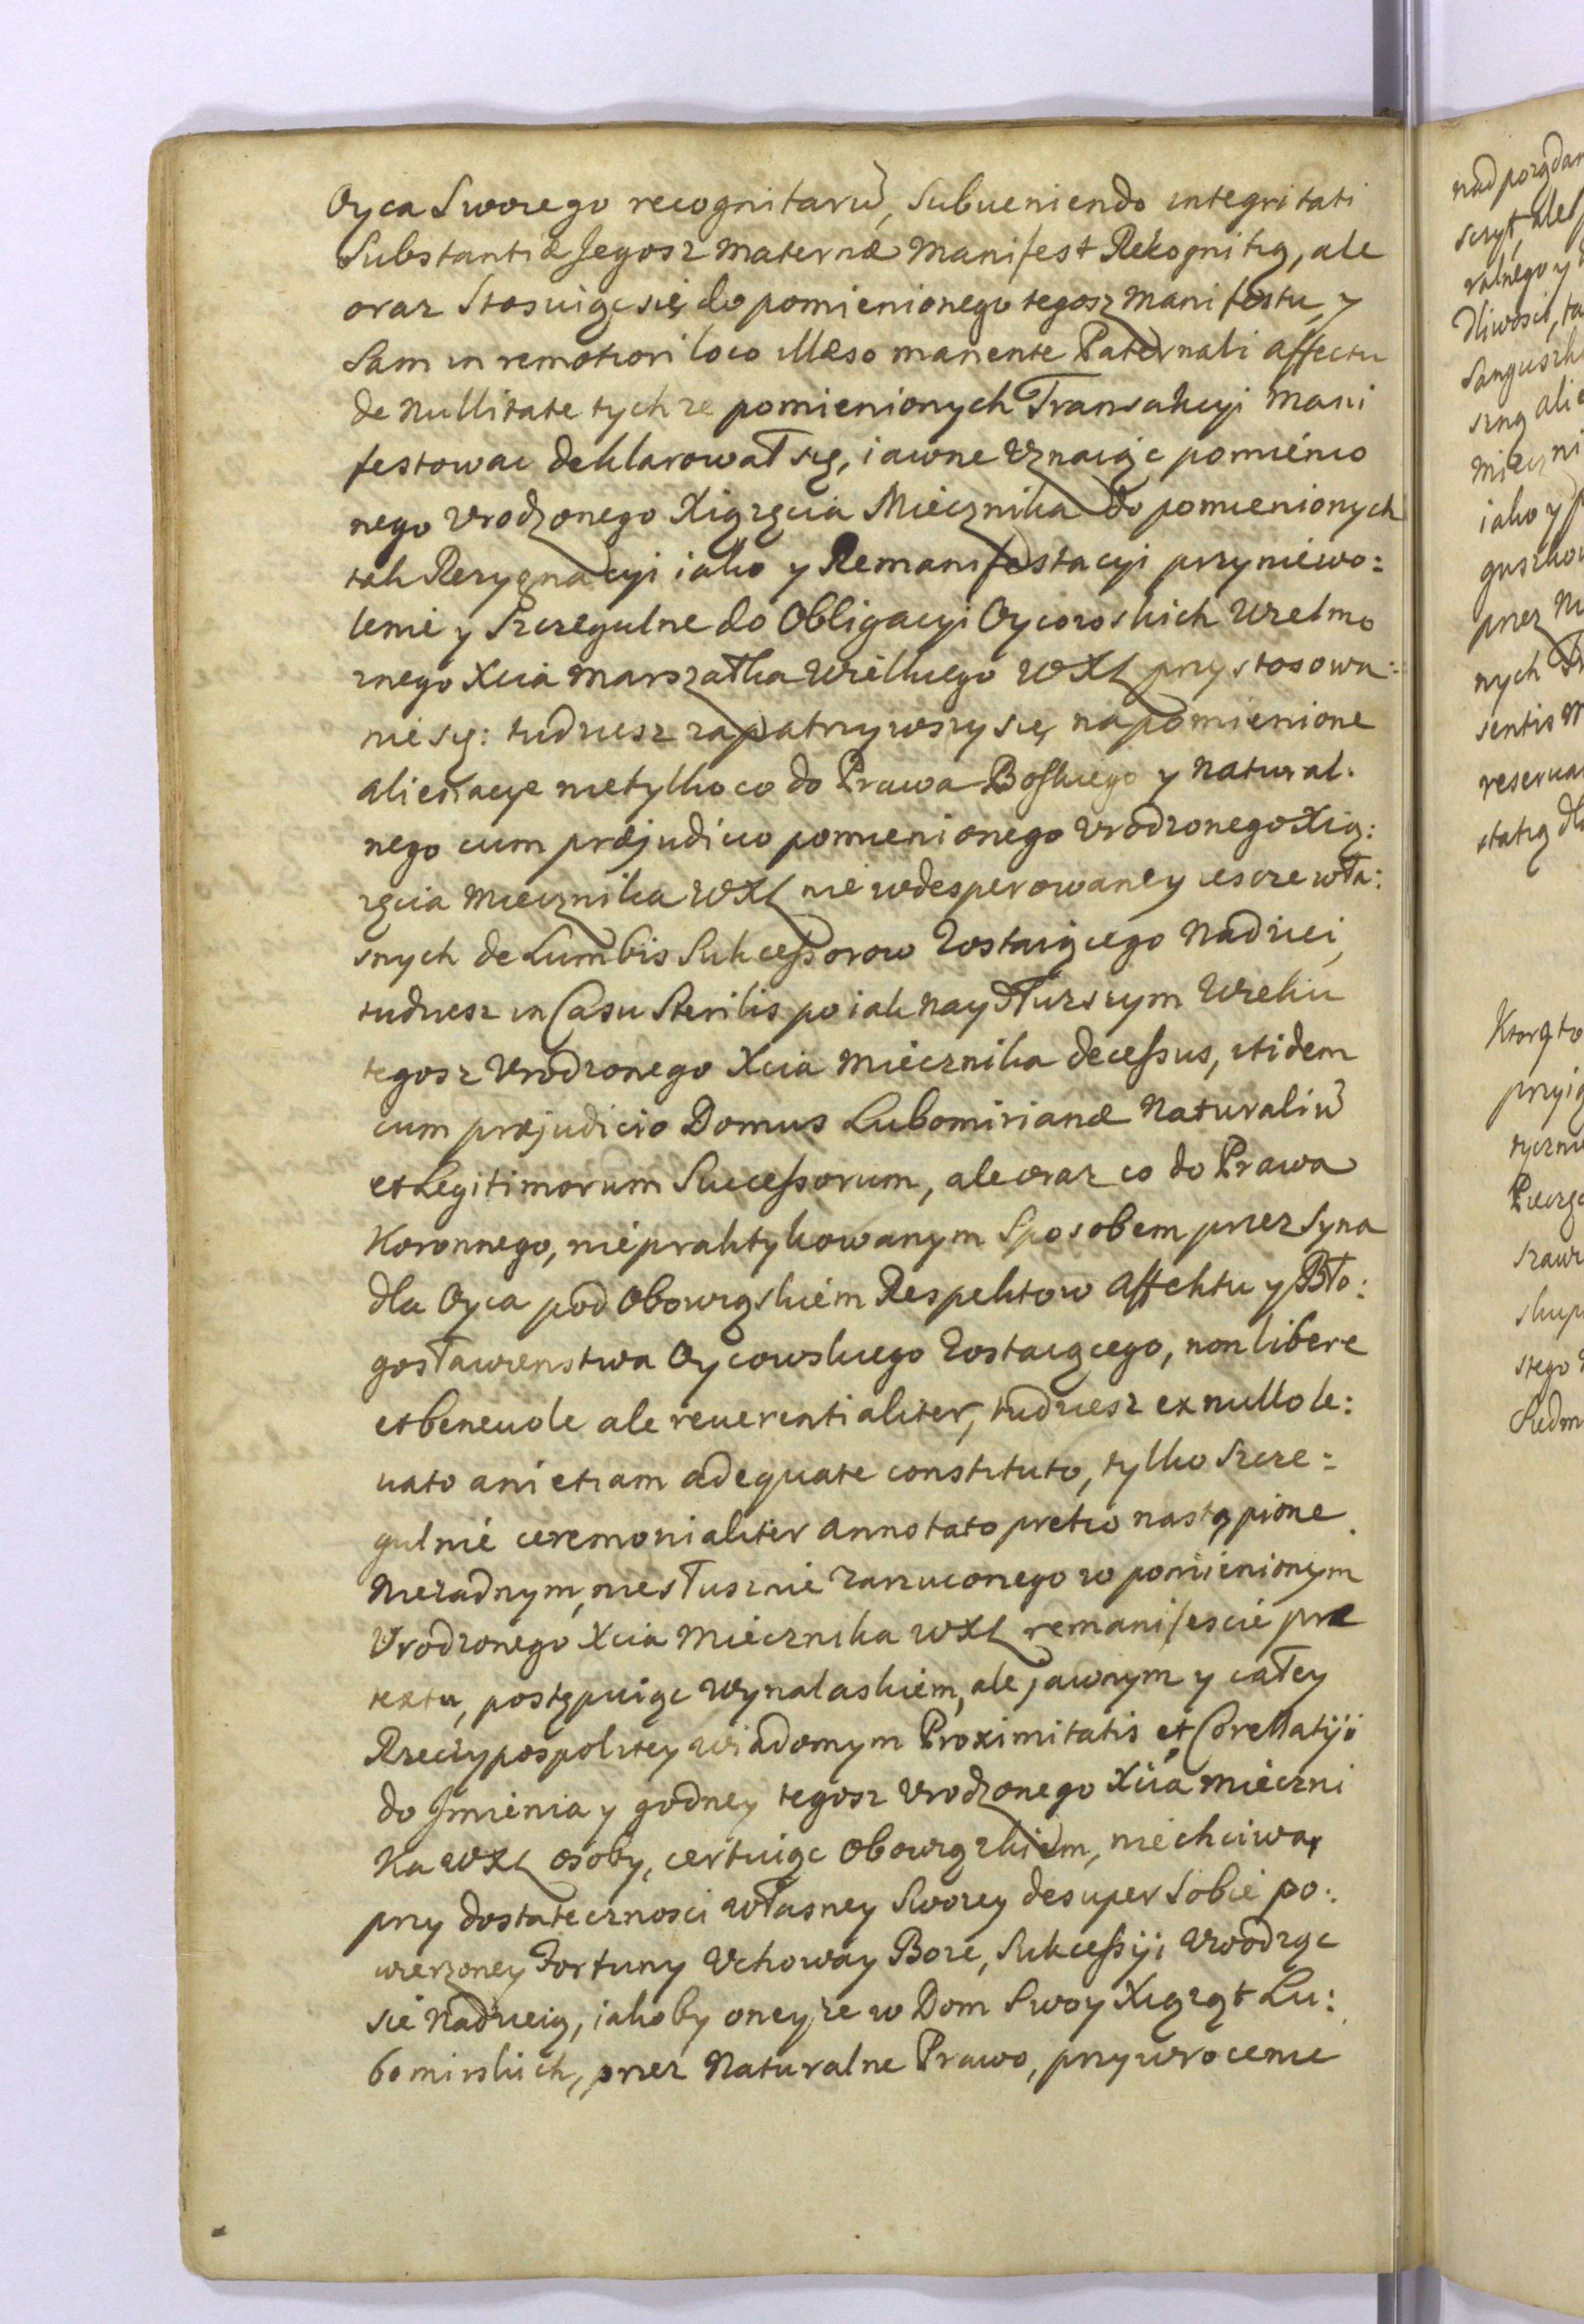 Oyca Swoiego recognitarũ, Subueniendo integritati
Substantiæ Jegosz maternæ Manifest Rekognitią, ale
oraz Stosuiąc się do pomienionego tegosz Manifestu, y
Sam in remotiori loco illæso manente Paternali affectu
de Nullitate tychze pomienionych Transakcyi Mani
festowac deklarował się, iawne Uznaiąc pomienio
nego Urodzonego Xiązęcia Miecznika do pomienionych
tak Rezygnacyi iako y Remanifestacyi przyniewo:
lenie y Szczegulne do Obligacyi Oycowskich Wielmo
znego Xcia Marszałka Wielkiego WXL przystosowa:
nie się: tudziesz zapatrzywszy się na pomienione
alienacye nietylko co do Prawa Boskiego y Natural:
nego cum præjudicio pomienionego Urodzonego Xią:
zęcia Miecznika WXL nie wdesperowaney iescze wła:
snych de Lumbis Sukcessorow Zostaiącego Nadziei,
tudziesz in Casu Sterilis po iak Naydłuzszym Wieku
tegosz Urodzonego Xcia Miecznika decessus, itidem
cum præjudicio Domus Lubomirianæ Naturaliũ
et Legitimorum Successorum, ale oraz co do Prawa
Koronnego, niepraktykowanym Sposobem przez Syna
dla Oyca pod Obowiąskiem Respektow Affektu y Bło:
gosławienstwa Oycowskiego Zostaiącego, non libere
et beneuole ale reuerentialiter, tudziesz ex nullo le:
uato ani etiam adequate constituto, tylko Szcze:
gulnie ceremonialiter annotato pretio nastąpione.
Niezadnym, niesłusznie zarzuconego w pomienionym
Urodzonego Xcia Miecznika WXL remanifescie præ
textu, postępuiąc Wynalaskiem, ale jawnym y całey
Rzeczypospolitey wiadomym Proximitatis et Corellatiji
do Jmienia y godney tegosz Urodzonego Xcia Mieczni
Ka WXL osoby, certuiąc Obowiązkiem, niechciwą
przy dostatecznosci własney Swoiey desuper Sobie po:
wierzoney Fortuny Uchoway Boze, Sukcessiji Uwodząc
sie Nadzieią, iakoby oneyze w Dom Swoy Xiąząt Lu:
bomirskich, przez Naturalne Prawo, przywrocenie